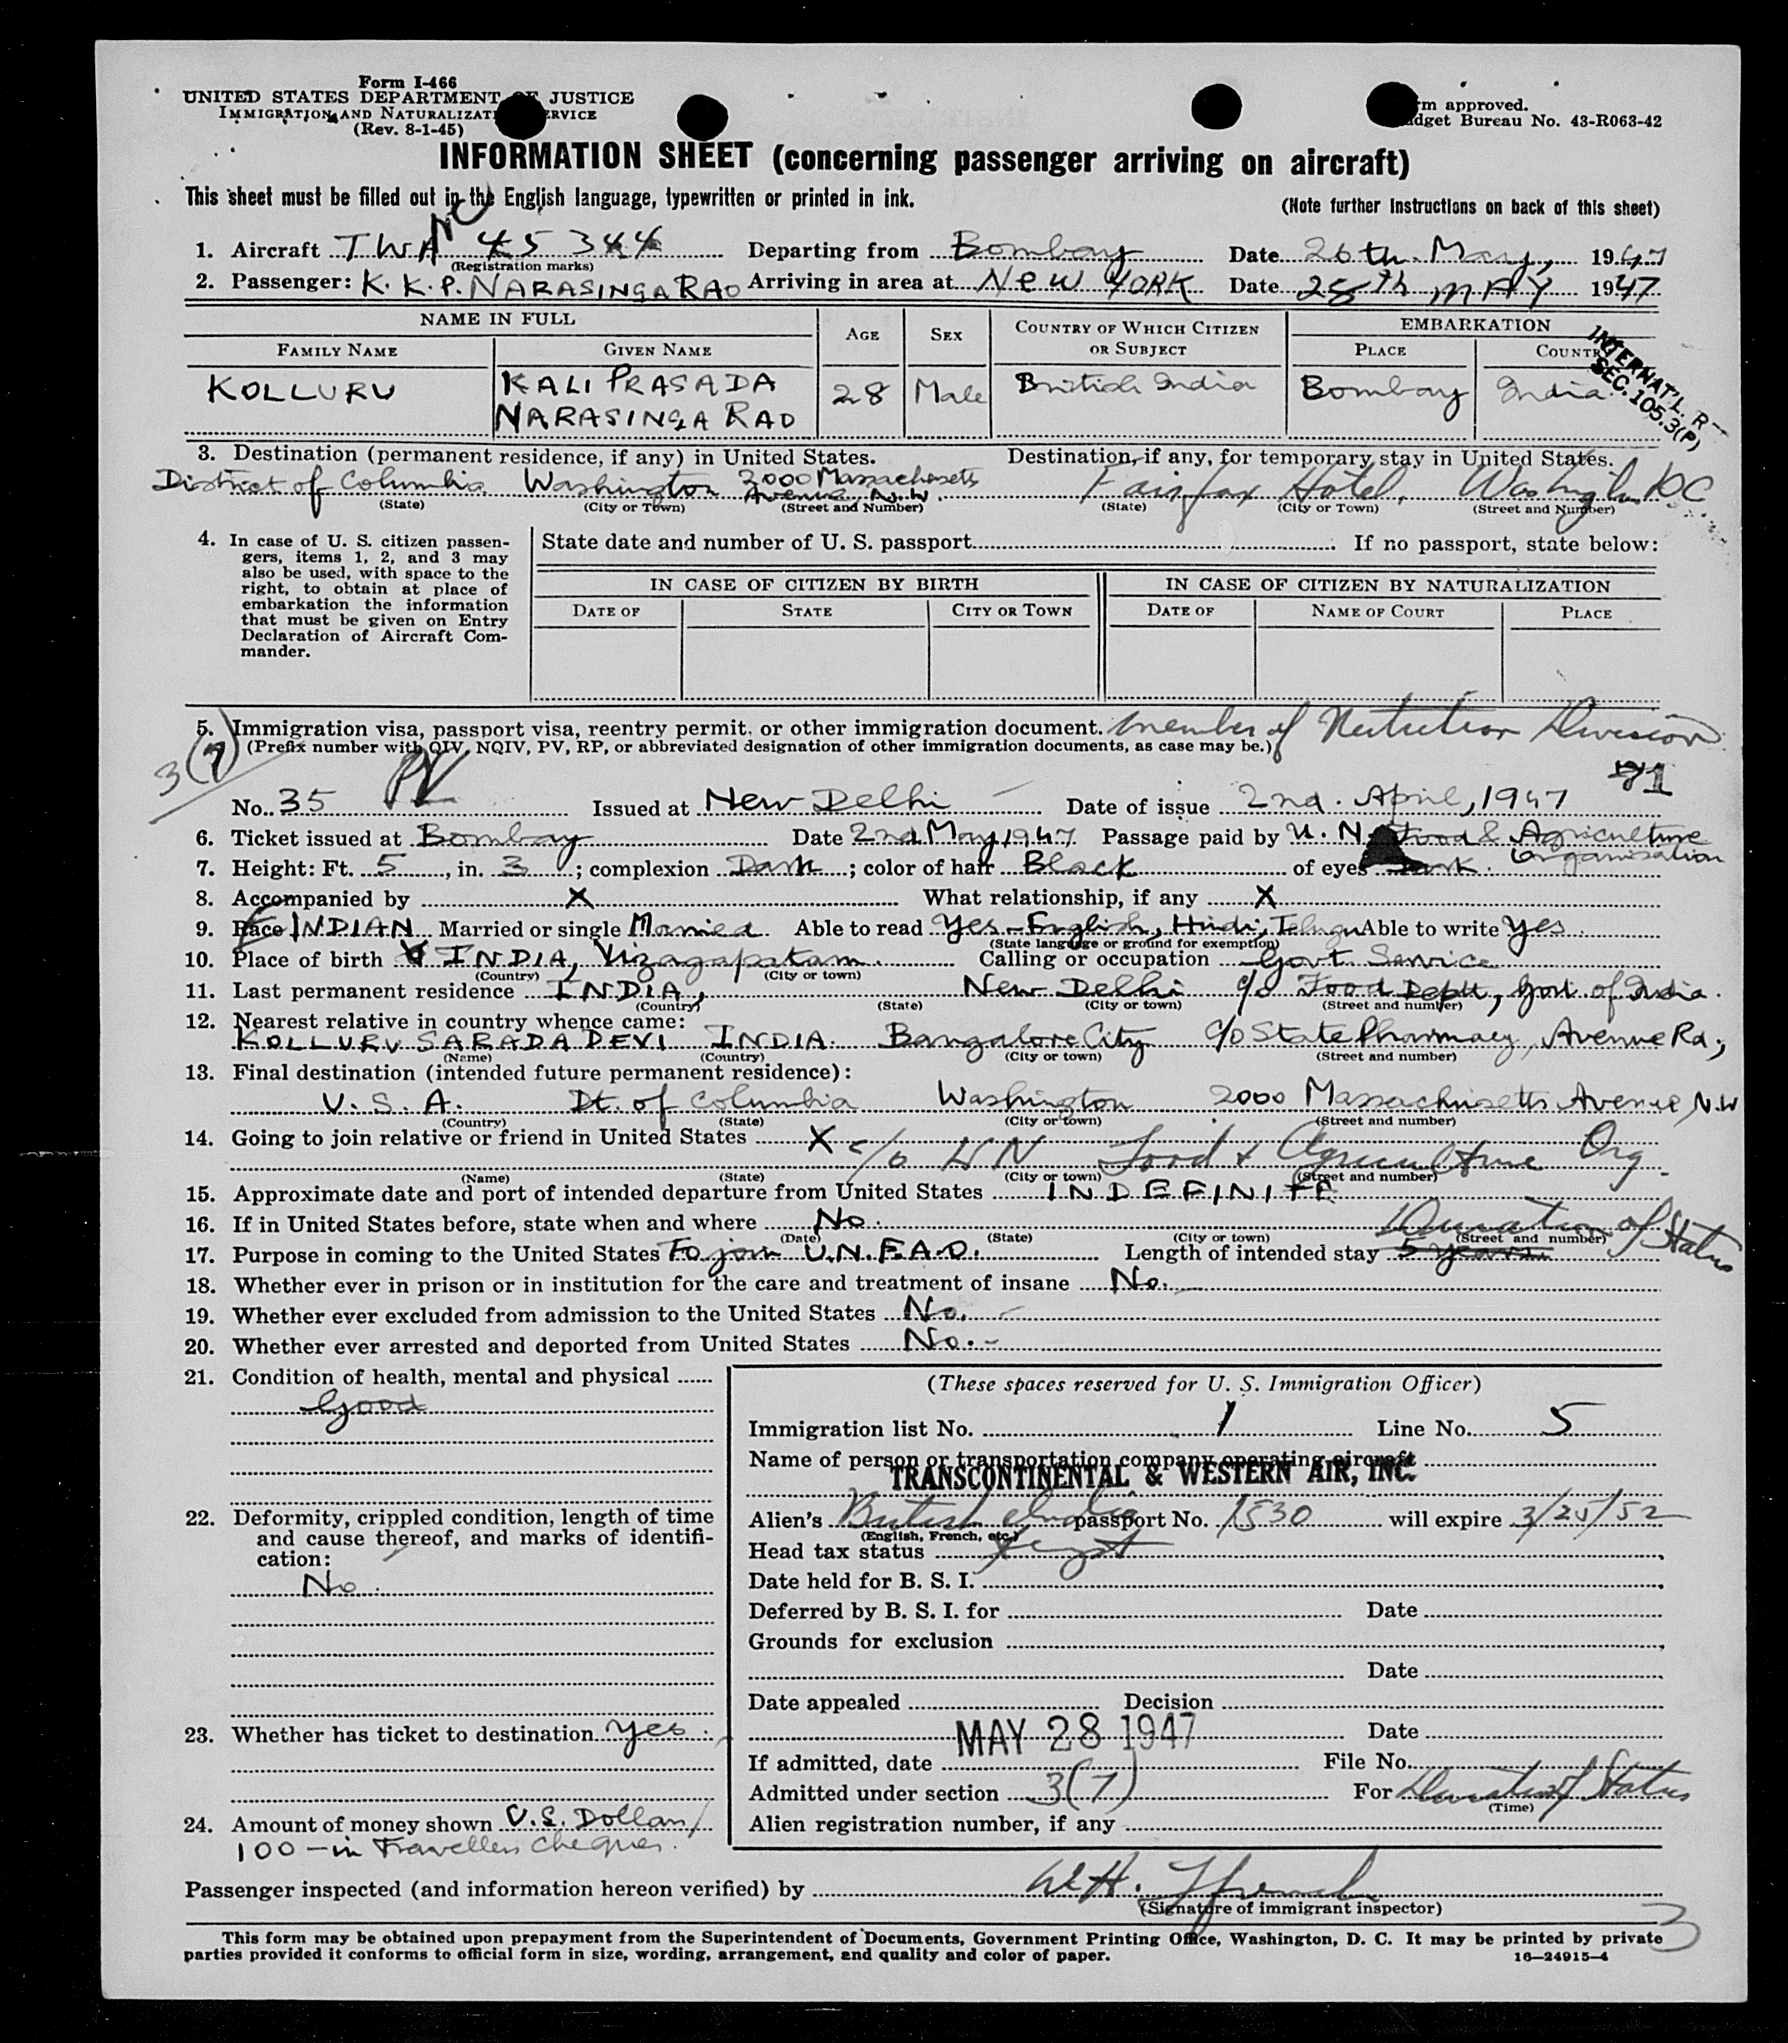 Form I-466
UNITED STATES DEPARTMENT OF JUSTICE
IMMIGRATION AND NATURALIZATION SERVICE
(Rev. 8-1-45)
Form approved.
Budget Bureau No. 43-R063-42
INFORMATION SHEET (concerning passenger arriving on aircraft)
This sheet must be filled out in the English language, typewritten or printed in ink.
(Note further instructions on back of this sheet)
NC
1. Aircraft TWA 45344 Departing from Bombay Date 26th May, 1947
(Registration marks)
2. Passenger: K. K. P. NARASINGA RAO Arriving in area at NEW YORK Date 28th MAY 1947
NAME IN FULL AGE SEX COUNTRY OF WHICH CITIZEN OR SUBJECT EMBARKATION
FAMILY NAME GIVEN NAME PLACE COUNTRY
INTERNAT'L. R
SEC. 105.3(P)
KOLLURU KALI PRASADA 28 Male British India Bombay India
NARASINGA RAO
3. Destination (permanent residence, if any) in United States. Destination, if any, for temporary stay in United States.
District of Columbia Washington 2000 Massachusets Avenue, N.W. Fairfax Hotel, Washington DC
(State) (City or Town) (Street and Number) (State) (City or Town) (Street and Number)
4. In case of U. S. citizen passen-
gers, items 1, 2, and 3 may
also be used, with space to the
right, to obtain at place of
embarkation the information
that must be given on Entry
Declaration of Aircraft Com-
mander.
State date and number of U. S. passport If no passport, state below:
IN CASE OF CITIZEN BY BIRTH IN CASE OF CITIZEN BY NATURALIZATION
DATE OF STATE CITY OR TOWN DATE OF NAME OF COURT PLACE
5. Immigration visa, passport visa, reentry permit, or other immigration document. member of Nutrition Division
(Prefix number with QIV, NQIV, PV, RP, or abbreviated designation of other immigration documents, as case may be.)
3(7) PV
71
No. 35 Issued at New Delhi Date of issue 2nd. April, 1947
6. Ticket issued at Bombay Date 2nd May, 1947 Passage paid by U. N. Food & Agriculture Organisation
7. Height: Ft. 5, in. 3; complexion Dark; color of hair Black of eyes Dark.
8. Accompanied by X What relationship, if any X
9. Race INDIAN Married or single Married Able to read Yes - English, Hindi, Telugu Able to write Yes
(State language or ground for exemption)
10. Place of birth INDIA, Vizagapatam. Calling or occupation Govt. Service
(Country) (City or town)
11. Last permanent residence INDIA, New Delhi c/o Food Deptt, Govt of India.
(Country) (State) (City or town) (Street and number)
12. Nearest relative in country whence came:
KOLLURU SARADA DEVI INDIA. Bangalore City C/o State Pharmacy, Avenue Rd.,
(Name) (Country) (City or town) (Street and number)
13. Final destination (intended future permanent residence):
U. S. A. Dt. of Columbia Washington 2000 Massachusetts Avenue, N.W
(Country) (State) (City or town) (Street and number)
14. Going to join relative or friend in United States X
c/o UN Food & Agriculture Org.
(Name) (State) (City or town) (Street and number)
15. Approximate date and port of intended departure from United States INDEFINITE
16. If in United States before, state when and where No.
(Date) (State) (City or town) (Street and number)
Duration of Status
17. Purpose in coming to the United States To join U.N.F.A.O. Length of intended stay 5 years
18. Whether ever in prison or in institution for the care and treatment of insane No.
19. Whether ever excluded from admission to the United States No.
20. Whether ever arrested and deported from United States No. -
21. Condition of health, mental and physical
Good
22. Deformity, crippled condition, length of time
and cause thereof, and marks of identifi-
cation:
No.
23. Whether has ticket to destination yes.
24. Amount of money shown U.S. Dollars
100 - in Travellers cheques.
(These spaces reserved for U. S. Immigration Officer)
Immigration list No. 1 Line No. 5
Name of person or transportation company operating aircraft
TRANSCONTINENTAL & WESTERN AIR, INC.
Alien's British India passport No. 1530 will expire 3/25/52
(English, French, etc.)
Head tax status
Date held for B. S. I.
Deferred by B. S. I. for Date
Grounds for exclusion
Date
Date appealed Decision
Date
MAY 28 1947
If admitted, date File No.
Admitted under section 3(7) For Duration of Status
(Time)
Alien registration number, if any
Passenger inspected (and information hereon verified) by W.H. Ffrench
(Signature of immigrant inspector)
3
This form may be obtained upon prepayment from the Superintendent of Documents, Government Printing Office, Washington, D. C. It may be printed by private
parties provided it conforms to official form in size, wording, arrangement, and quality and color of paper.
16—24915-4